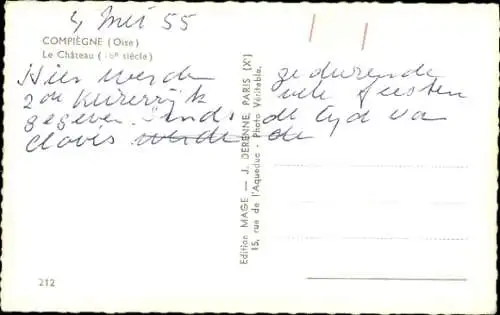 4 Mei 55
COMPIÈGNE (Oise)
Le Château ( 6e siècle)
Hier werden gedurende
zoo vele feesten
gegeven. Sinds de tijd van
Clovis de
Edition MAGE — J. DERENNE, PARIS (Xe)
15, rue de l'Aqueduc - Photo Véritable.
212